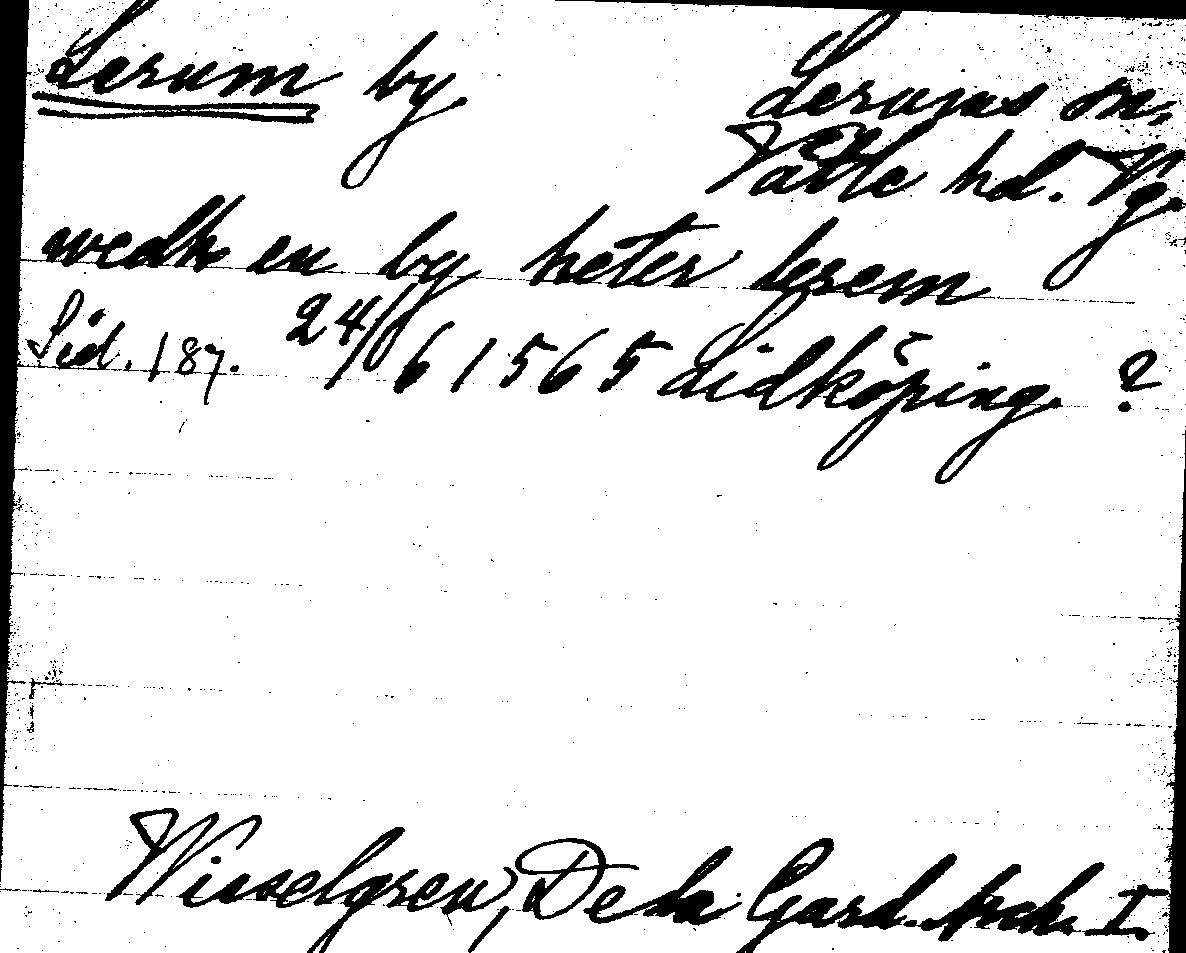 Lerum by
Lerums sn.
Vättle hd. Vg.
wedh en by heter lerem
Sid. 187. 24/6 1565 Lidköping ?
Wieselgren, De la Gard. Arch. I.